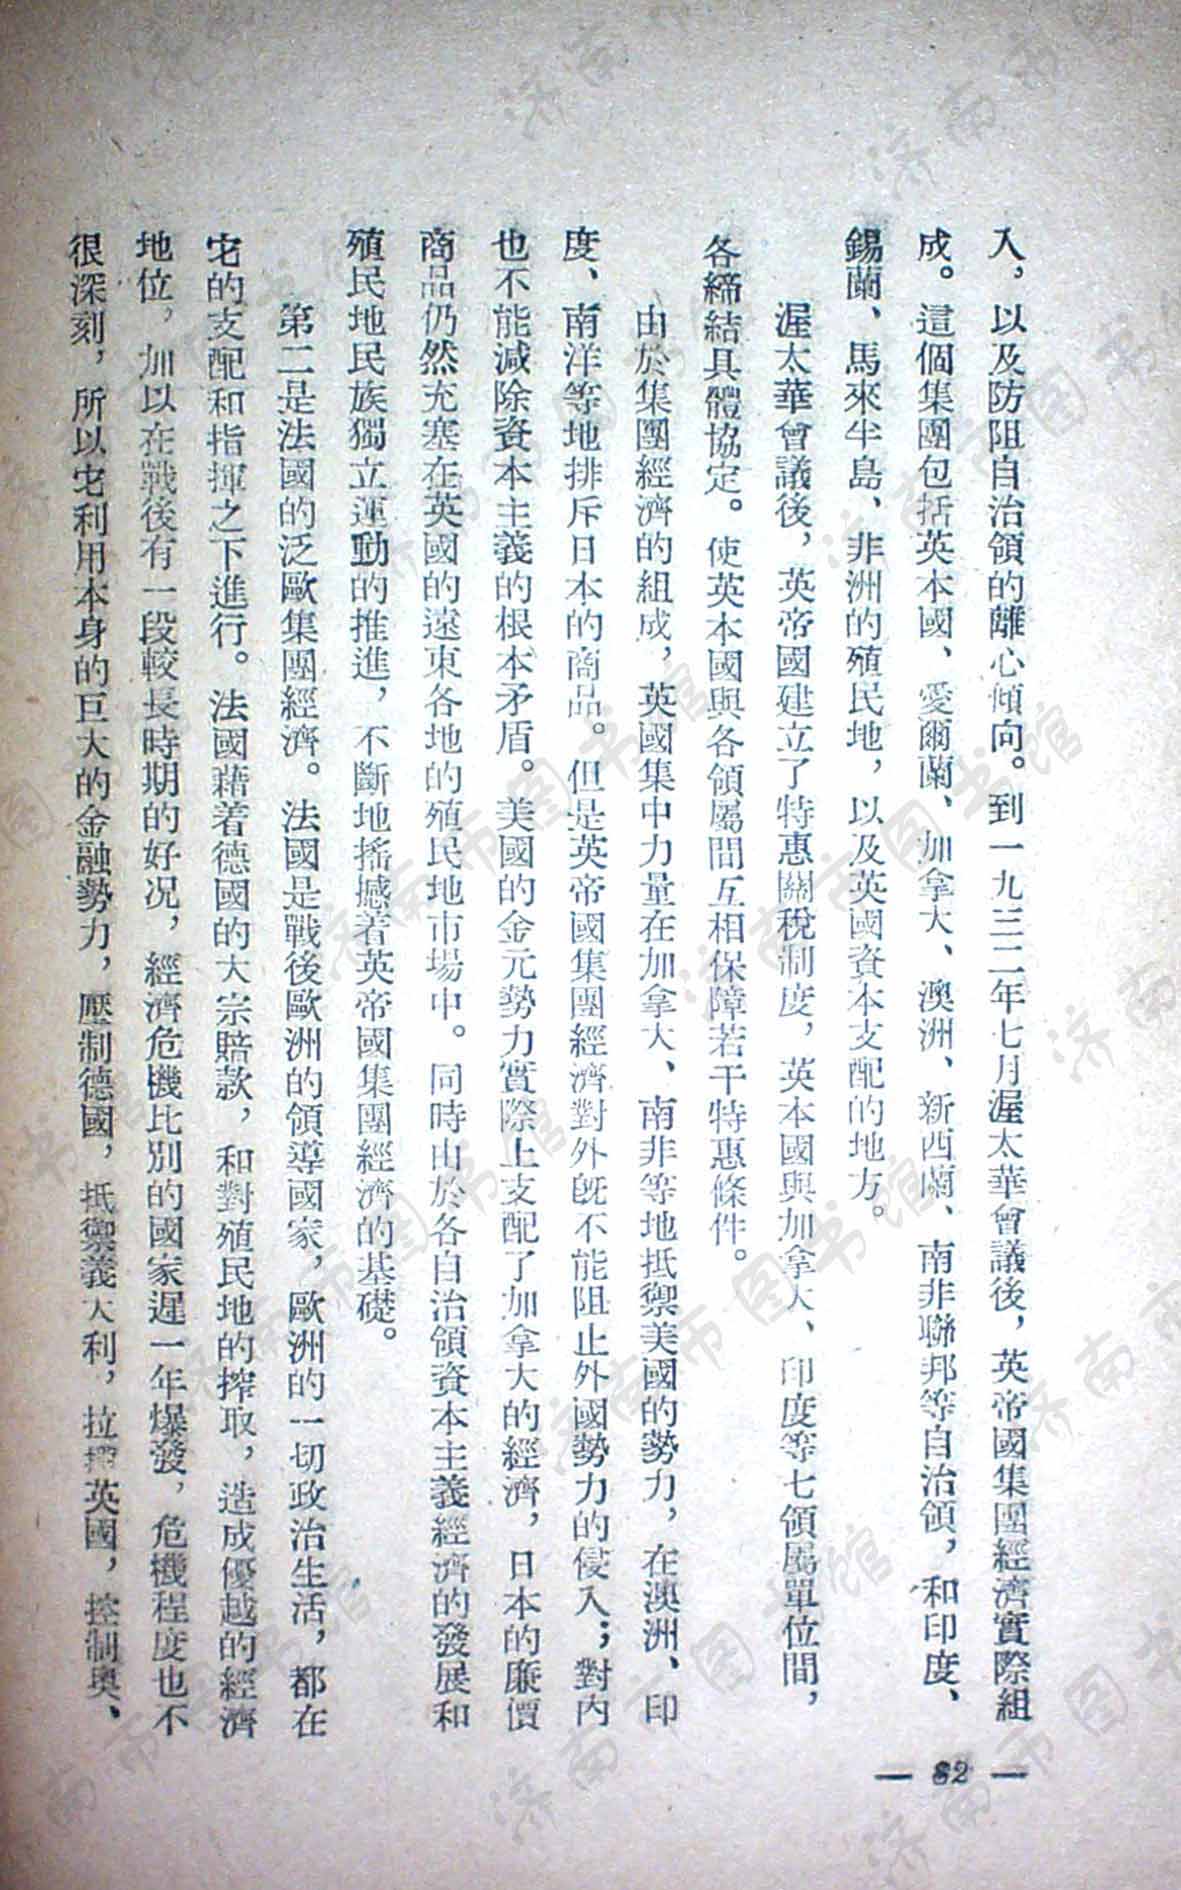 入，以及防阻自治領的離心傾向。到一九三二年七月渥太華會議後，英帝國集團經濟實際組
成。這個集團包括英本國、愛爾蘭、加拿大、澳洲、新西蘭、南非聯邦等自治領，和印度、
錫蘭、馬來半島、非洲的殖民地，以及英國資本支配的地方。
渥太華會議後，英帝國建立了特惠關稅制度，英本國與加拿大、印度等七領屬單位間，
各締結具體協定。使英本國與各領屬間互相保障若干特惠條件。
由於集團經濟的組成，英國集中力量在加拿大、南非等地抵禦美國的勢力，在澳洲、印
度、南洋等地排斥日本的商品。但是英帝國集團經濟對外旣不能阻止外國勢力的侵入；對內
也不能減除資本主義的根本矛盾。美國的金元勢力實際上支配了加拿大的經濟，日本的廉價
商品仍然充塞在英國的遠東各地的殖民地市場中。同時由於各自治領資本主義經濟的發展和
殖民地民族獨立運動的推進，不斷地搖撼着英帝國集團經濟的基礎。
第二是法國的泛歐集團經濟。法國是戰後歐洲的領導國家，歐洲的一切政治生活，都在
宅的支配和指揮之下進行。法國藉着德國的大宗賠款，和對殖民地的搾取，造成優越的經濟
地位，加以在戰後有一段較長時期的好况，經濟危機比別的國家遲一年爆發，危機程度也不
很深刻，所以宅利用本身的巨大的金融勢力，壓制德國，抵禦義大利，拉攏英國，控制奧、
— 82 —
济南市图书馆